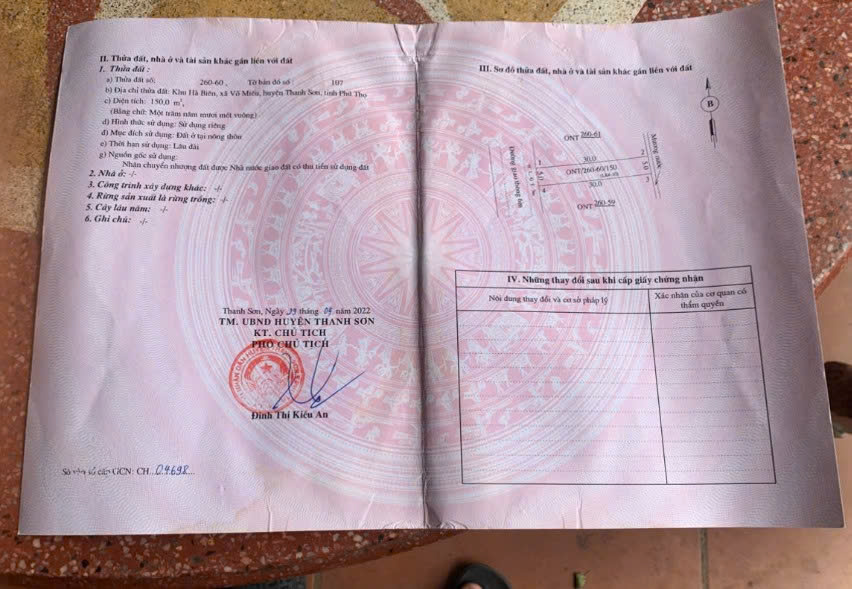 II. Thửa đất, nhà ở và tài sản khác gắn liền với đất
1. Thửa đất :
a) Thửa đất số: 260-60 , Tờ bản đồ số : 107
b) Địa chỉ thửa đất: Khu Hà Biên, xã Võ Miếu, huyện Thanh Sơn, tỉnh Phú Thọ
c) Diện tích: 150,0 m²,
(Bằng chữ: Một trăm năm mươi mét vuông)
d) Hình thức sử dụng: Sử dụng riêng
đ) Mục đích sử dụng: Đất ở tại nông thôn
e) Thời hạn sử dụng: Lâu dài
g) Nguồn gốc sử dụng:
Nhận chuyển nhượng đất được Nhà nước giao đất có thu tiền sử dụng đất
2. Nhà ở: -/-
3. Công trình xây dựng khác: -/-
4. Rừng sản xuất là rừng trồng: -/-
5. Cây lâu năm: -/-
6. Ghi chú: -/-
Thanh Sơn, Ngày 29 tháng 04 năm 2022
TM. UBND HUYỆN THANH SƠN
KT. CHỦ TỊCH
PHÓ CHỦ TỊCH
Đinh Thị Kiều An
Số vào sổ cấp GCN: CH...04698...
III. Sơ đồ thửa đất, nhà ở và tài sản khác gắn liền với đất
B
ONT 260-61
Mương nước
Đường giao thông
1
30,0
2
5,0
ONT/260-60/150
5,0
4
30,0
3
ONT 260-59
IV. Những thay đổi sau khi cấp giấy chứng nhận
Nội dung thay đổi và cơ sở pháp lý
Xác nhận của cơ quan có
thẩm quyền